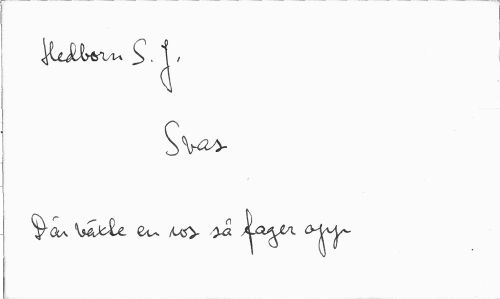 Hedborn S. J.
Svas
Där växte en ros så fager opp